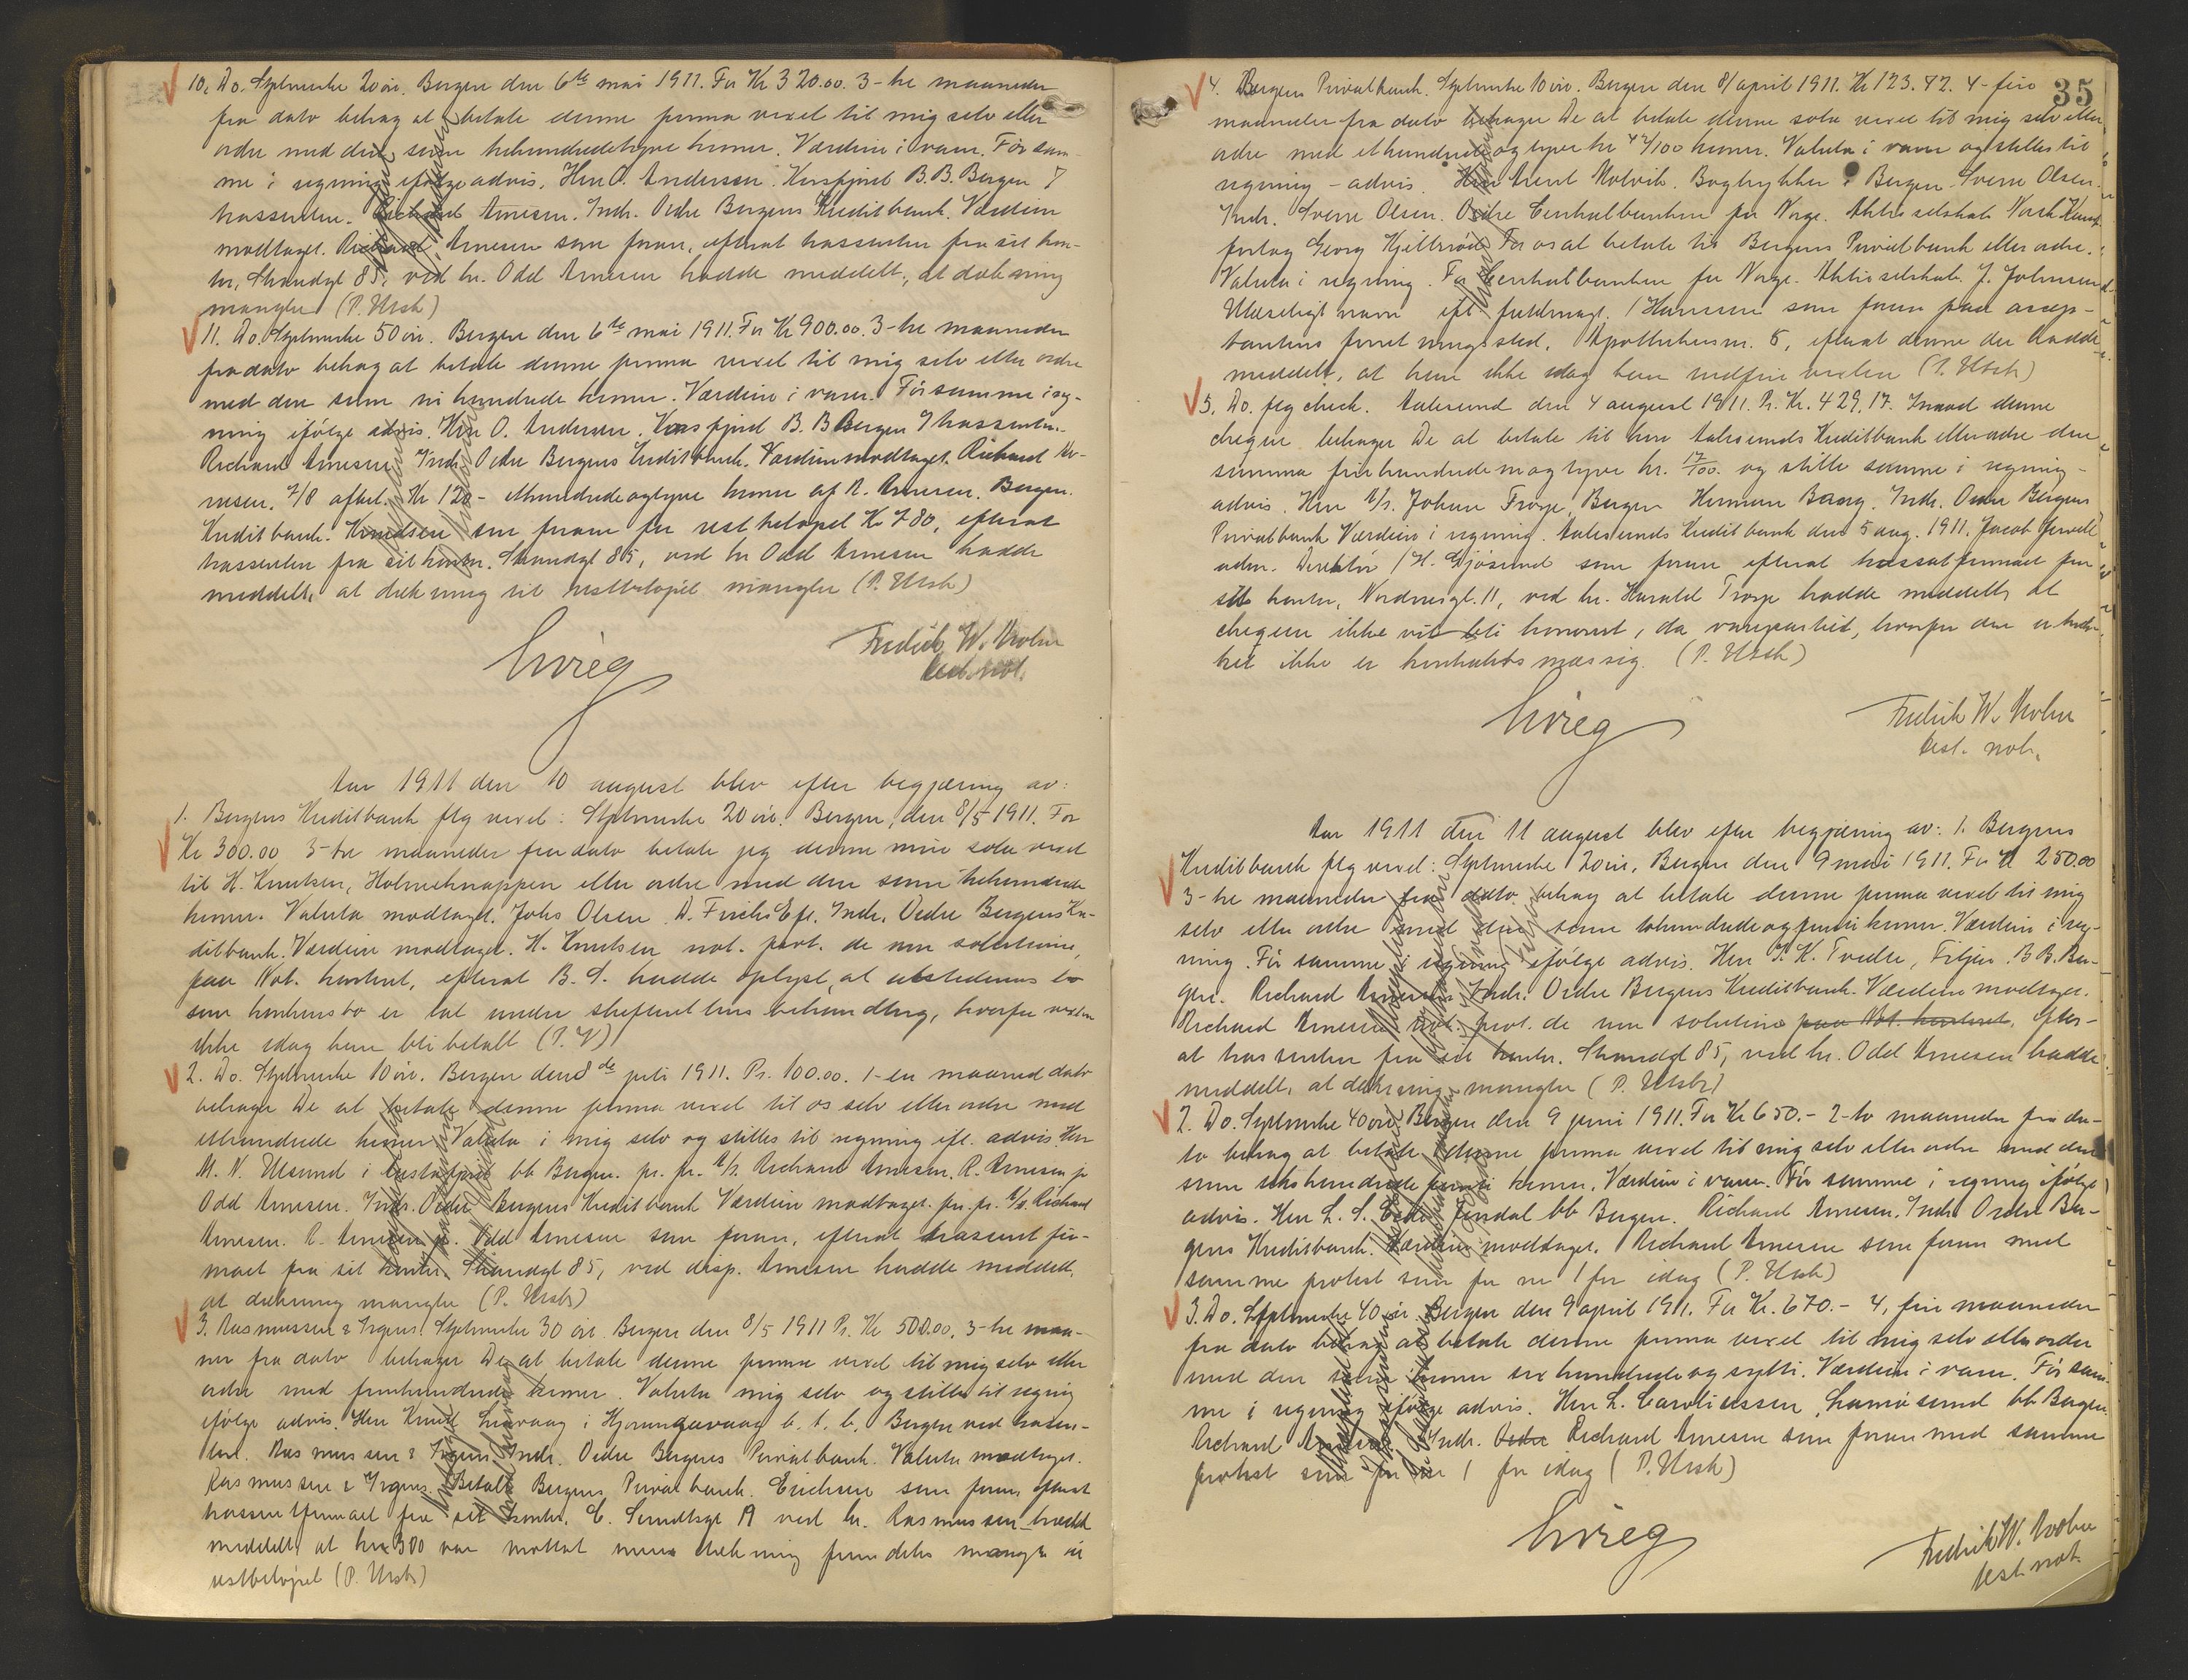 10. Do. Stplmerke 20 øre. Bergen den 6te mai 1911. For Kr 320.00. 3-tre maaneder
fra dato behag at betale denne prima vexel til mig selv eller
ordre med den sum trehundredetyve kroner. Værdien i varer. Før sam-
me i regning ifølge advis. Herr O. Andersen. Korsfjord B.B. Bergen
trassenten. Richard Arnesen. Indr. Ordre Bergens Kreditbank. Værdien
modtaget. Richard Arnesen som foran, efterat trassenten fra sit kon-
tor, Strandgt 85, ved hr. Odd Arnesen hadde meddelt, at dækning
mangler (P. Utsk)
11. Do. Stplmerke 50 øre. Bergen den 6te mai 1911. For Kr 900.00. 3-tre maaneder
fra dato behag at betale denne prima vexel til mig selv eller ordre
med den sum ni hundrede kroner. Værdien i varer. Før samme i reg-
ning ifølge advis. Herr O. Andersen. Korsfjord B.B Bergen trassenten.
Richard Arnesen Indr. Ordre Bergens Kreditbank. Værdien modtaget. Richard Ar-
nesen. 7/8 afbet. Kr 120- ethundredeogtyve kroner af R. Arnesen. Bergen.
Kreditbank. Knudsen som foran for restbeløpet Kr 780, efterat
trassenten fra sit kontor. Strandgt 85, ved hr Odd Arnesen hadde
meddelt, at dækning til restbeløpet mangler (P. Utsk)
Fredrik W. Krohn
Aar 1911 den 10 august blev efter begjæring av:
1. Bergens Kreditbank flg vexel: Stplmerke 20 øre. Bergen, den 8/5 1911. For
Kr 300.00 3-tre maaneder fra dato betale jeg denne min sola vexel
til H. Knutsen, Holmeknappen eller ordre med den sum trehundrede
kroner. Valuta modtaget. Johs Olsen. Indr. Ordre Bergens Kre-
ditbank. Værdien modtaget. H. Knutsen not. prot. de non solutione,
paa Not. kontoret, efterat B. S. hadde oplyst, at utstederens bo
som konkursbo er tat under skifterettens behandling, hvorfor vexlen
ikke idag kan bli betalt (P. V)
2. Do. Stplmerke 10 øre. Bergen den 8de juli 1911. Pr. 100.00. 1-en maaned dato
behager De at betale denne prima vexel til os selv eller ordre med
ethundrede kroner Valuta i mig selv og stilles til regning ifl. advis Herr
M. N. Ulsund i bb Bergen. pr. pr. A/S. Richard Arnesen. R. Arnesen jr
Odd Arnesen. Indr. Ordre Bergens Kreditbank Værdien modtaget. pr. pr. A/S. Richard
Arnesen. R. Arnesen jr. Odd Arnesen som foran, efterat trassentfir-
maet fra sit kontor. Strandgt 85, ved disp. Arnesen hadde meddelt,
at dækning mangler (P. Utsk)
3. Rasmussen & Irgens. Stplmerke 30 øre. Bergen den 8/5 1911 Pr. Kr 500.00, 3-tre maa-
ner fra dato behager De at betale denne prima vexel til mig selv eller
ordre med femhundrede kroner. Valuta mig selv og stilles til regning
ifølge advis. Herr Knut i Hjorungavaag b. t. b. Bergen ved trassen-
ten. Rasmussen & Irgens. Indr. Ordre Bergens Privatbank. Valuta modtaget.
Rasmussen & Irgens. Betalt Bergens Privatbank. Erichsen som foran, efterat
trassentfirmaet fra sit kontor. C. Sundtsgt 19 ved hr. Rasmussen hadde
meddelt, at kr 300 var mottat mens dækning fremdeles mangler til
restbeløpet (P. Utsk)
35
4. Bergens Privatbank. Stplmerke 10 øre. Bergen den 8/april 1911. Kr 123.42. 4-fire
maaneder fra dato behager De at betale denne sola vexel til mig selv eller
ordre med ethundrede og tyve tre 42/100 kroner. Valuta i varer og stilles til
regning - advis. Herr Arent Molvik. Bogtrykker i Bergen. Sverre Olsen.
Indr. Sverre Olsen. Ordre Centralbanken for Norge. Aktieselskab Norsk Kunst-
forlag Georg Kjellsrød For os at betale til Bergens Privatbank eller ordre.
Valuta i regning. For Centralbanken for Norge. Aktieselskab. J. Johnsund
Ulæseligt navn ifl. fuldmagt. / Hansen som foran paa accep-
tantens forretningssted, 5, efterat denne der hadde
meddelt, at han ikke idag kan indfri vexlen (P. Utsk)
5. Do. flg check. Aalesund den 4 august 1911. Pr. Kr. 429.17. Imod denne
cheque behager De at betale til herr Aalesunds Kreditbank eller ordre den
summa firehundrede niogtyve kr. 17/100 og stille samme i regning -
advis. Herr A/S. Johan Troye, Bergen Herman Bang. Indr. Ordre Bergens
Privatbank Værdien i regning. Aalesunds Kreditbank den 5 aug. 1911. Jacob Jervell
adm. Direktør / H. Gjøsund som foran efterat trassatfirmaet fra
sit kontor, Nordnesgt. 11, ved hr. Harald Troye hadde meddelt, at
chequen ikke vil bli honorert, da varepartiet, hvorfor den er truk-
ket ikke er kontraktsmæssig. (P. Utsk)
Fredrik W. Krohn
Aar 1911 den 11 august blev efter begjæring av: 1. Bergens
Kreditbank flg vexel: Stplmerke 20 øre. Bergen den 9 mai 1911. For Kr 250.00
3-tre maaneder fra dato behag at betale denne prima vexel til mig
selv eller ordre med den sum tohundredeogfemti kroner. Værdien i reg-
ning. Før samme i regning ifølge advis. Herr K. Tvedte, Fitjar. B B. Ber-
gen. Richard Arnesen. Indr. Ordre Bergens Kreditbank. Værdien modtaget.
Richard Arnesen not. prot. de non solutione paa Not. kontoret, efter-
at trassenten fra sit kontor. Strandgt 85, ved hr. Odd Arnesen hadde
meddelt, at dækning mangler (P. Utsk)
2. Do. Stplmerke 40 øre Bergen den 9 juni 1911. For Kr 650.- 2-to maaneder fra da-
to behag at betale denne prima vexel til mig selv eller ordre med den
sum sekshundredefemti kroner. Værdien i varer. Før samme i regning ifølge
advis. Herr L. S. bb Bergen. Richard Arnesen. Indr. Ordre Ber-
gens Kreditbank. Værdien modtaget. Richard Arnesen som foran med
samme protest som for no 1 for idag (P. Utsk)
3. Do. Stplmerke 40 øre. Bergen den 9 april 1911. For Kr. 670.- 4, fire maaneder
fra dato behag at betale denne prima vexel til mig selv eller ordre
med den sum kroner sex hundrede og sytti. Værdien i varer. Før sam-
me i regning ifølge advis. Herr L. bb Bergen.
Richard Arnesen Indr. Ordre Richard Arnesen som foran med samme
protest som for no 1 for idag (P. Utsk)
Fredrik W. Krohn